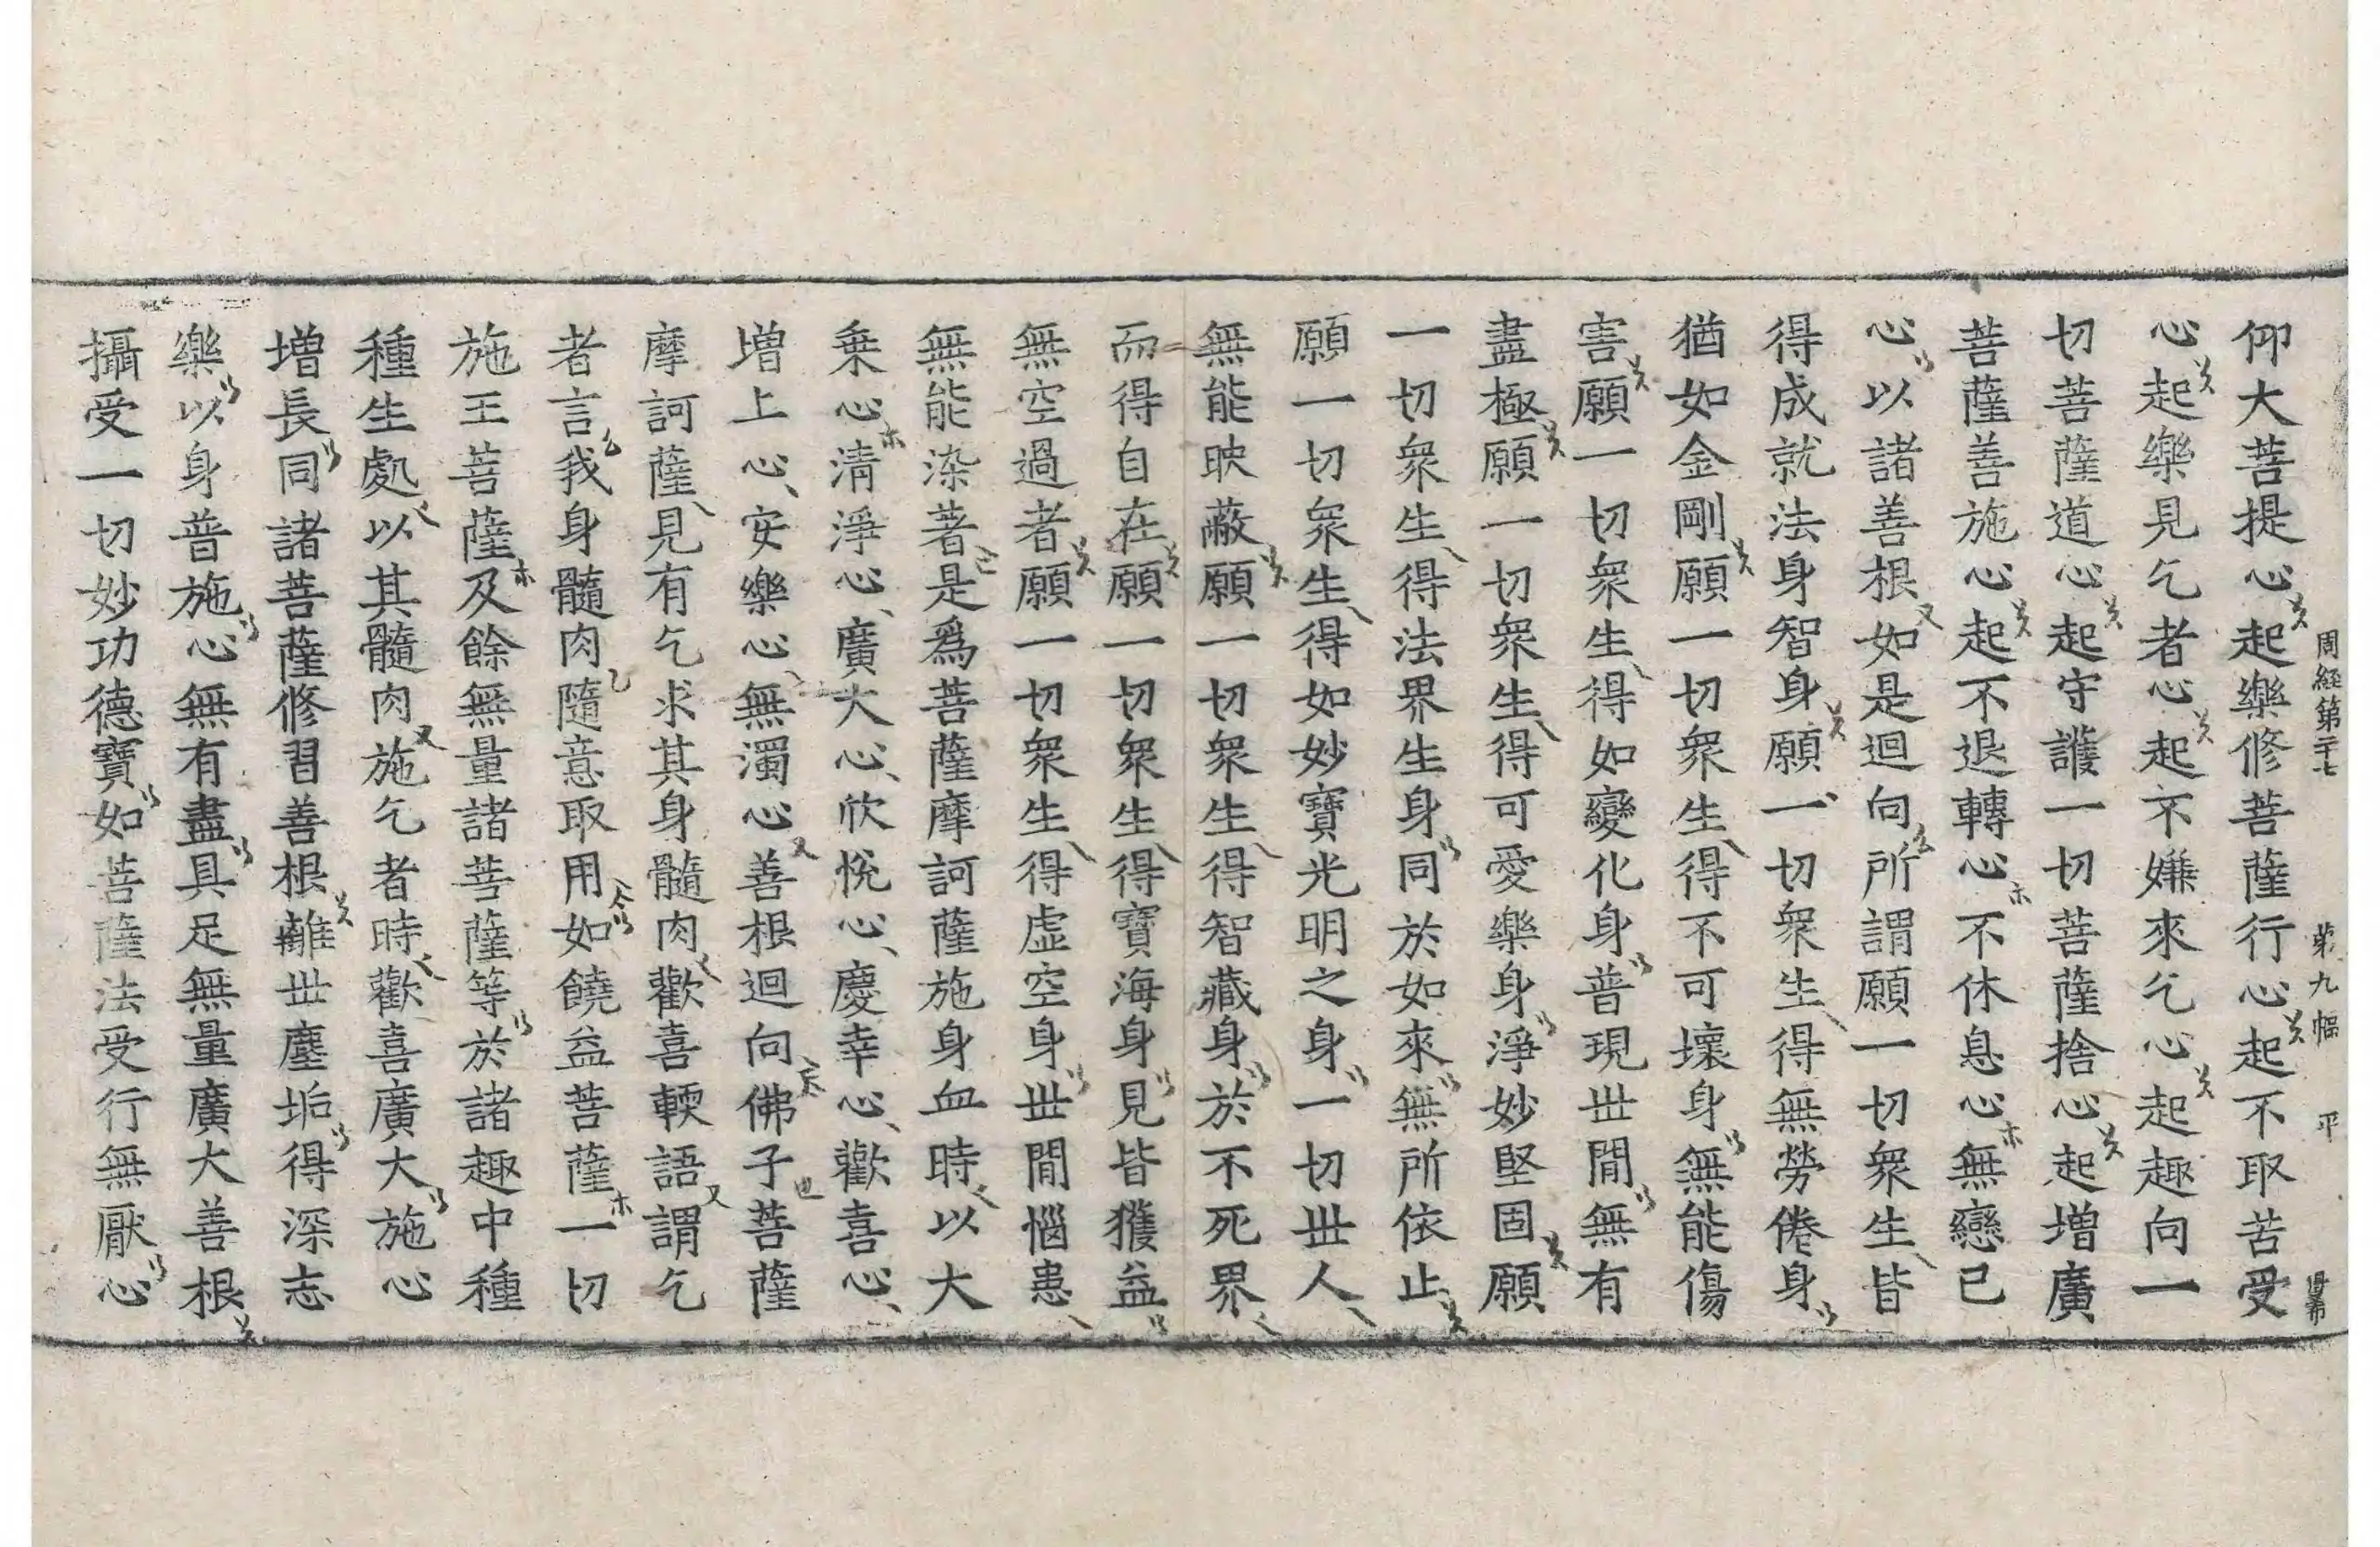 周經第二十七　第九幅　平
仰大菩提心起樂修菩薩行心起不取苦受
心起樂見乞者心起不嫌來乞心起趣向一
切菩薩道心起守護一切菩薩捨心起增廣
菩薩善施心起不退轉心不休息心無戀己
心以諸善根如是迴向所謂願一切衆生皆
得成就法身智身願一切衆生得無勞倦身
猶如金剛願一切衆生得不可壞身無能傷
害願一切衆生得如變化身普現世間無有
盡極願一切衆生得可愛樂身淨妙堅固願
一切衆生得法界生身同於如來無所依止
願一切衆生得如妙寶光明之身一切世人
無能映蔽願一切衆生得智藏身於不死界
而得自在願一切衆生得寶海身見皆獲益
無空過者願一切衆生得虛空身世間惱患
無能染著是爲菩薩摩訶薩施身血時以大
乗心清淨心廣大心欣悅心慶幸心歡喜心
增上心安樂心無濁心善根迴向佛子菩薩
摩訶薩見有乞求其身髓肉歡喜輭語謂乞
者言我身髓肉隨意取用如饒益菩薩一切
施王菩薩及餘無量諸菩薩等於諸趣中種
種生處以其髓肉施乞者時歡喜廣大施心
增長同諸菩薩修習善根離世塵垢得深志
樂以身普施心無有盡具足無量廣大善根
攝受一切妙功德寶如菩薩法受行無厭心